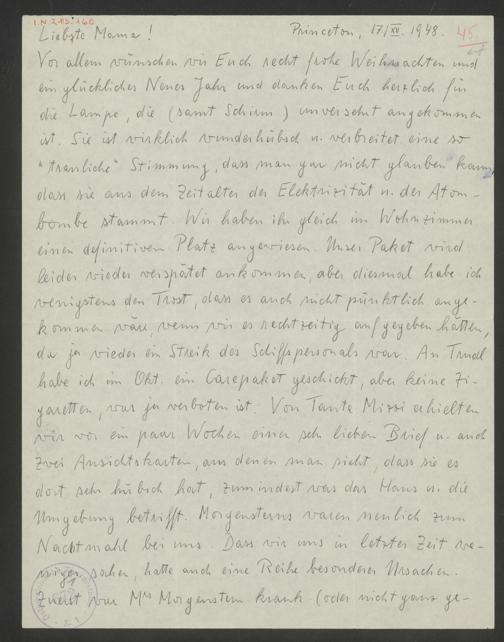 I.N. 213.160
Princeton, 17/XII. 1948.
45.
Liebste Mama!
Vor allem wünschen wir Euch recht frohe Weihnachten und
ein glückliches Neues Jahr und danken Euch herzlich für
die Lampe, die (samt Schirm) unversehrt angekommen
ist. Sie ist wirklich wunderhübsch u. verbreitet eine so
"trauliche" Stimmung, dass man gar nicht glauben kann,
dass sie aus dem Zeitalter der Elektrizität u. der Atom-
bombe stammt. Wir haben ihr gleich im Wohnzimmer
einen definitiven Platz angewiesen. Unser Paket wird
leider wieder verspätet ankommen, aber diesmal habe ich
wenigstens den Trost, dass es auch nicht pünktlich ange-
kommen wäre, wenn wir es rechtzeitig aufgegeben hätten,
da ja wieder ein Streik des Schiffspersonals war. An Trudl
habe ich im Okt. ein Carepaket geschickt, aber keine Zi-
garetten, was ja verboten ist. Von Tante Mizzi erhielten
wir vor ein paar Wochen einen sehr lieben Brief u. auch
zwei Ansichtskarten, aus denen man sieht, dass sie es
dort sehr hübsch hat, zumindest was das Haus u. die
Umgebung betrifft. Morgensterns waren neulich zum
Nachtmahl bei uns. Dass wir uns in letzter Zeit we-
niger sahen, hatte auch eine Reihe besonderer Ursachen.
Zuerst war Mrs Morgenstern krank (oder nicht ganz ge-